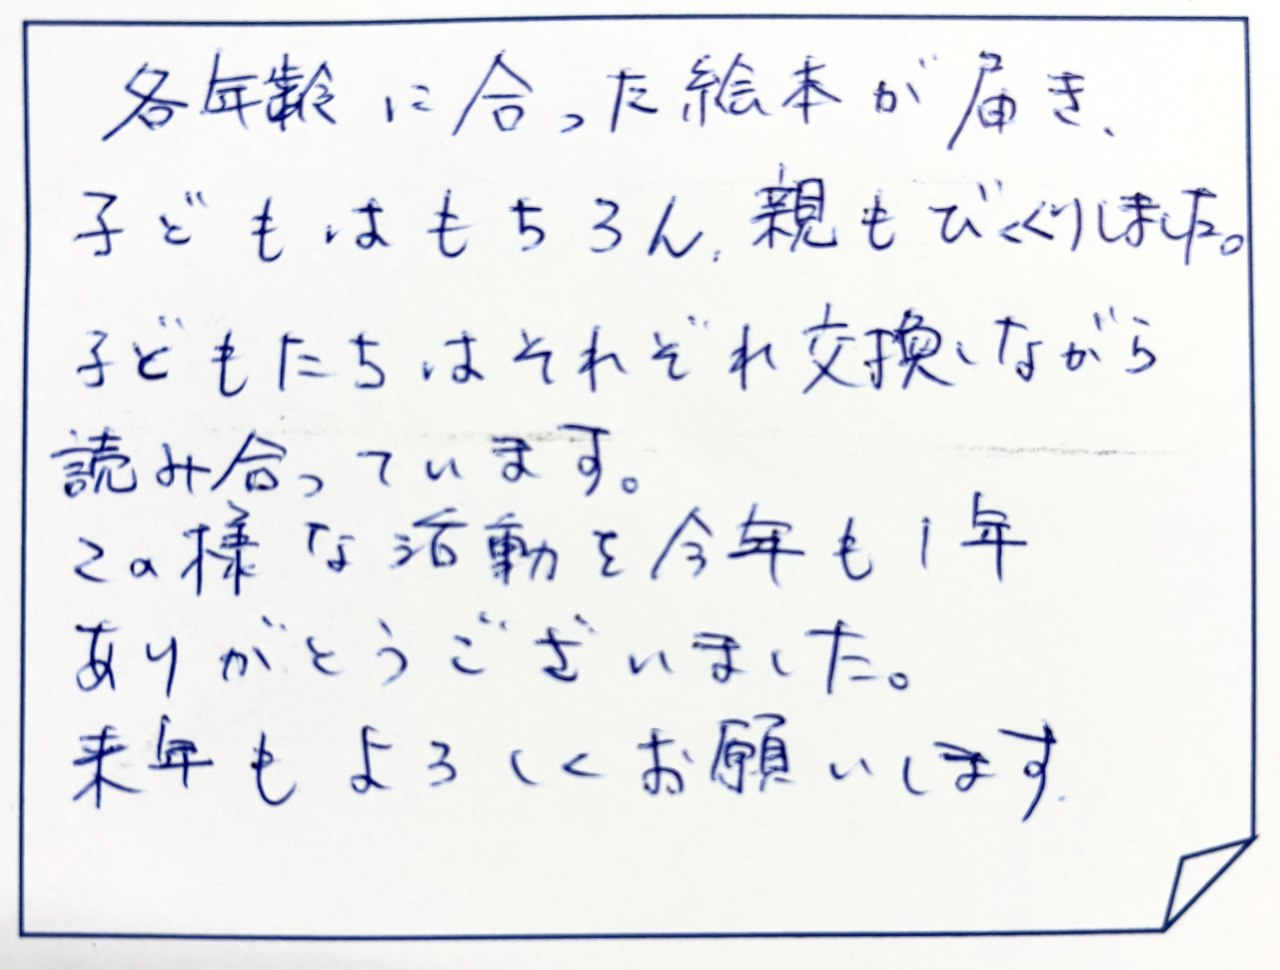 各年齢に合った絵本が届き、
子どもはもちろん、親もびっくりしました。
子どもたちはそれぞれ交換しながら
読み合っています。
この様な活動を今年も1年
ありがとうございました。
来年もよろしくお願いします.